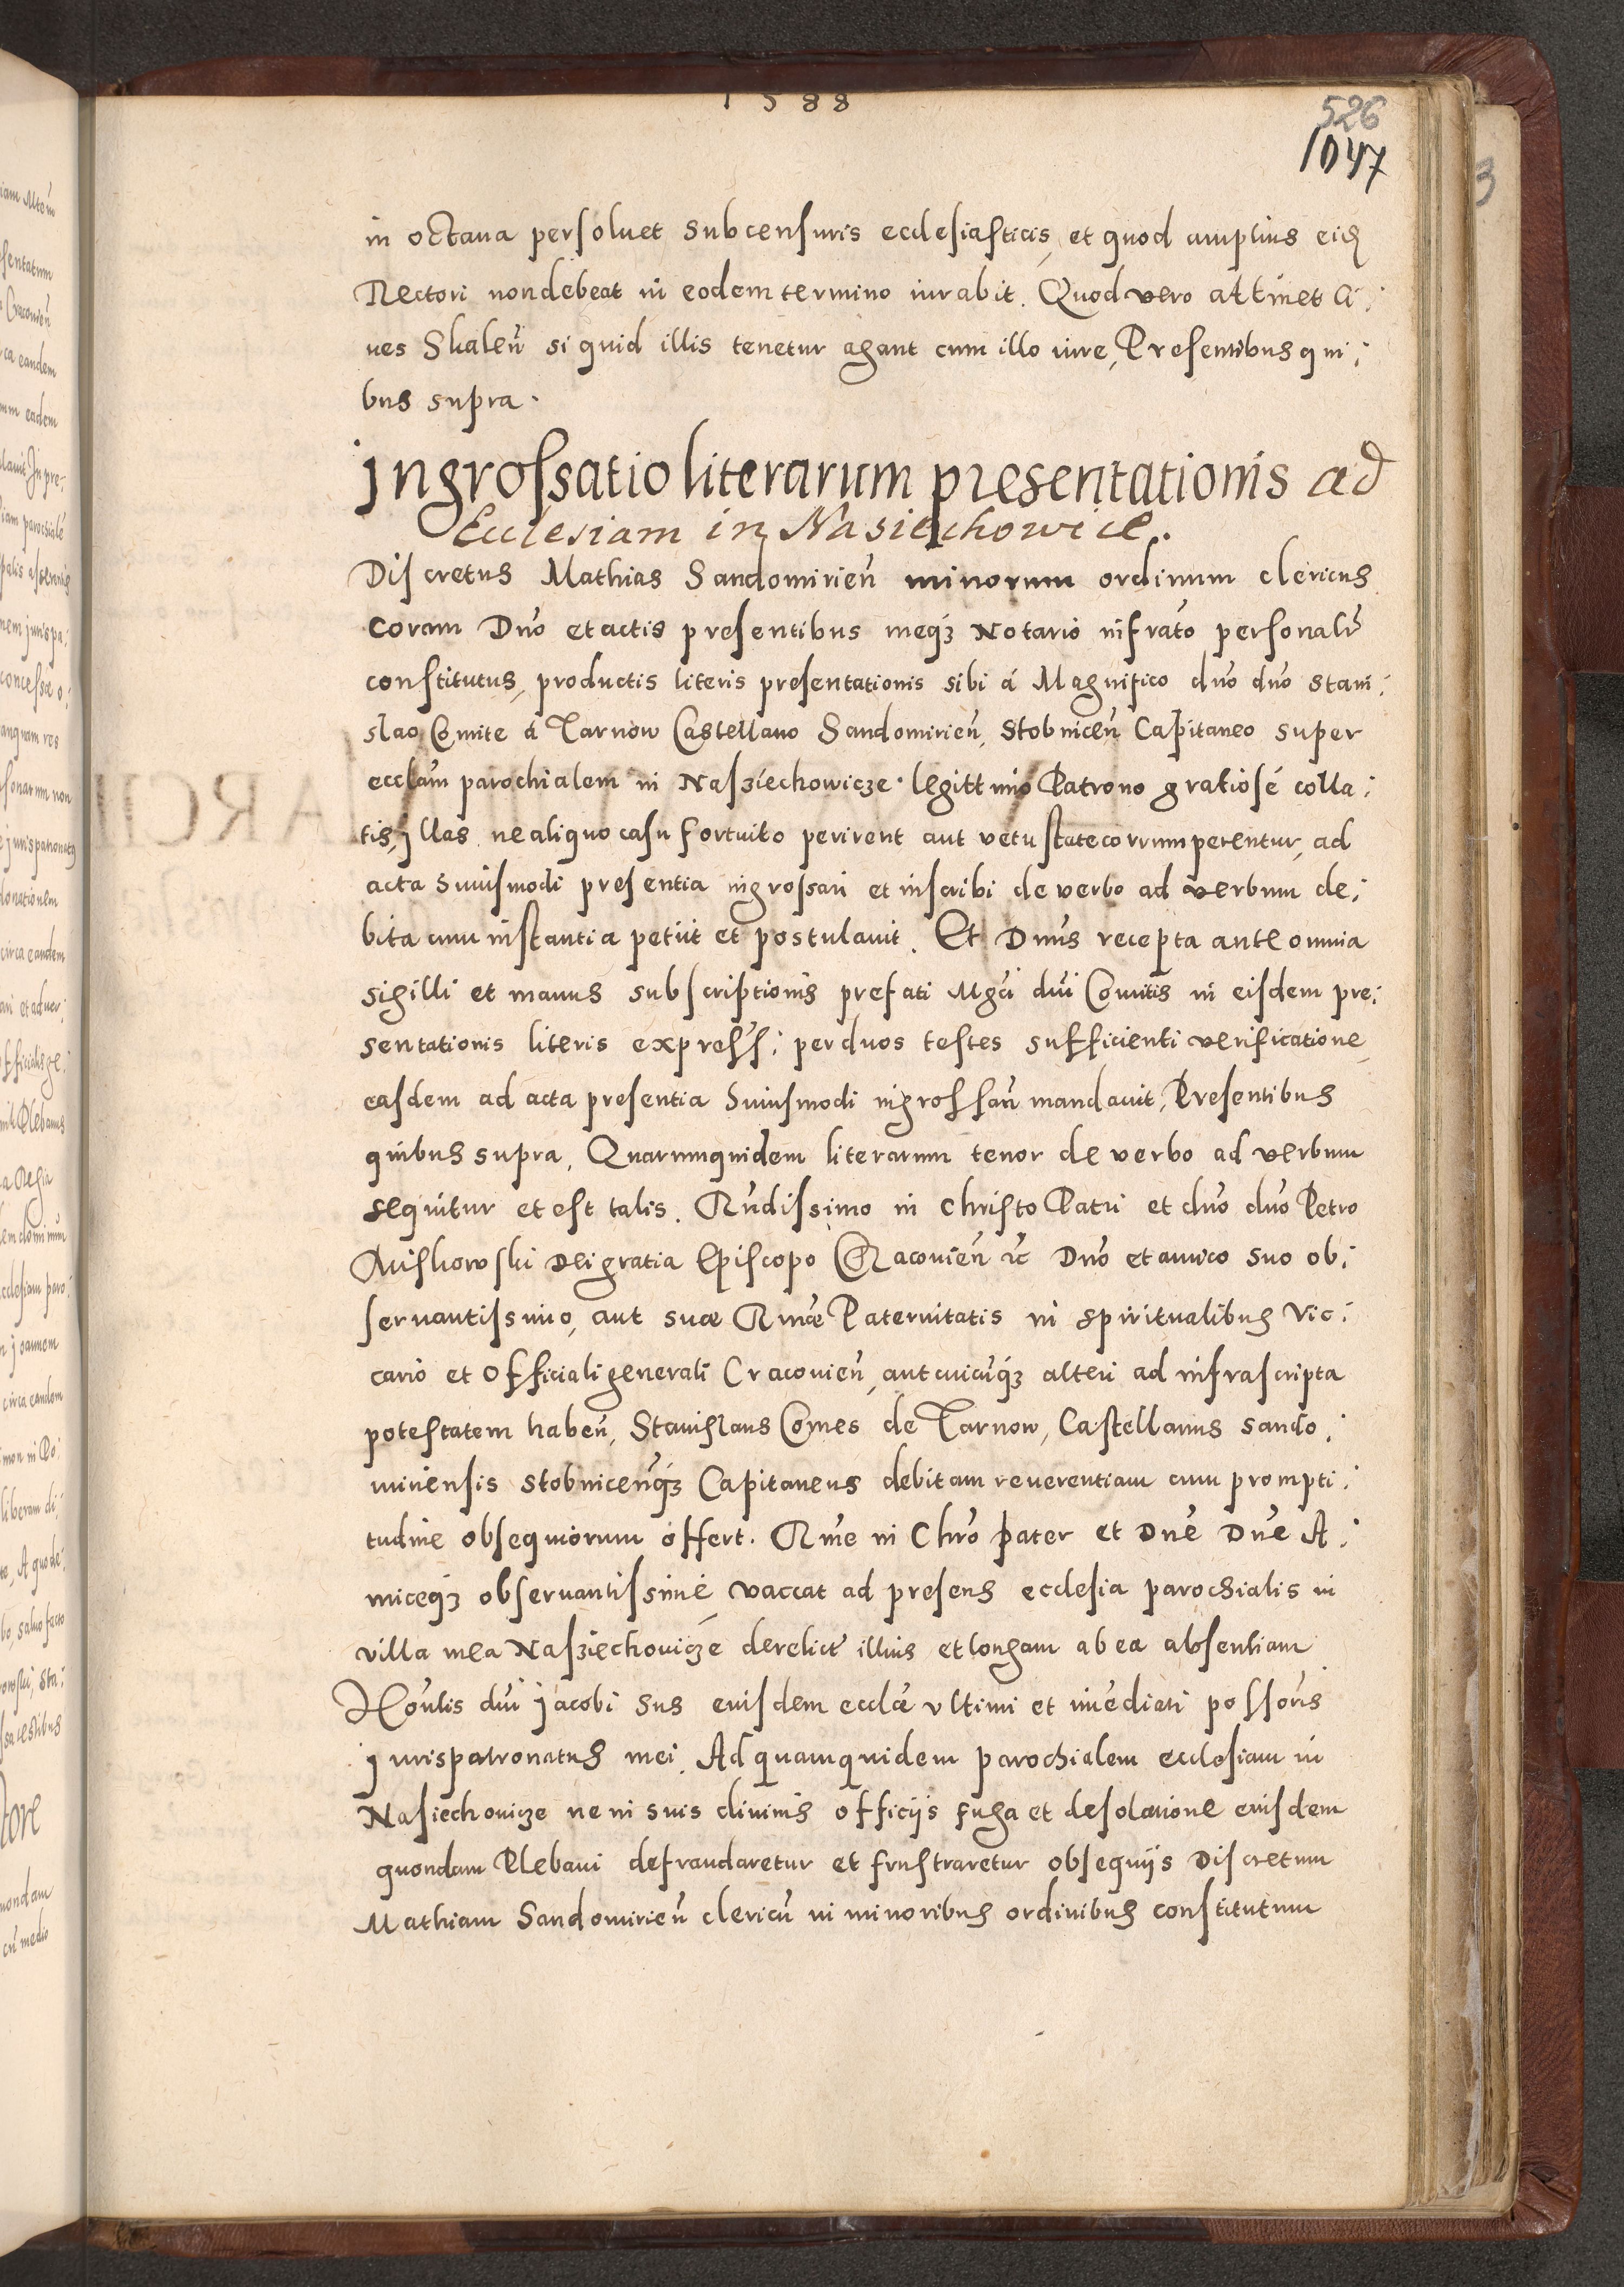 1588
526
1047
in octava persoluet sub censuris ecclesiasticis, et quod amplius eid
Rectori non debeat in eodem termino iurabit. Quod vero attinet Ci:
ues Skaleñ si quid illis tenetur agant cum illo iure, Presentibus qui:
bus supra.
Ingrossatio literarum presentationis ad
Ecclesiam in Nasiechowice.
Discretus Mathias Sandomirieñ minorum ordinum clericus
coram Dño et actis presentibus meqʒ Notario infrãto personalr̃
constitutus, productis literis presentationis sibi á Magnifico dño dño Stani:
slao Comite á Tarnow Castellano Sandomirieñ, Stobniceñ Capitaneo super
ecclãm parochialem in Naszíechowicze legittimo Patrono gratiosé colla:
tis, illas ne aliquo casu fortuito perirent aut vetustate corrumperentur, ad
acta huiusmodi presentia ingrossari et inscribi de verbo ad verbum de:
bita cum instantia petiit et postulauit. Et Dñus recepta ante omnia
sigilli et manus subscriptionis prefati Mgci dñi Comitis in eisdem pre:
sentationis literis express: per duos testes sufficienti verificatione,
easdem ad acta presentia huiusmodi ingrossari mandauit, Presentibus
quibus supra. Quarumquidem literarum tenor de verbo ad verbum
sequitur et est talis. Rũdissimo in Christo Patri et dño dño Petro
Miskowski Dei gratia Episcopo Cracouieñ ꝛc Dño et amico suo ob:
seruantissimo, aut suæ Rmæ Paternitatis in spiritualibus Vic:
cario et Officiali generali Cracouieñ, aut cuicũqʒ alteri ad infrascripta
potestatem habeñ, Stanislaus Comes de Tarnow, Castellanus Sando:
miriensis Stobniceñqʒ Capitaneus debitam reuerentiam cum prompti:
tudine obsequiorum offert. Rme in Chr̃o pater et Dñe Dñe A:
miceqʒ obseruantissimé vaccat ad presens ecclesia parochialis in
villa mea Naszíechouiczé derelict illius et longam ab ea absentiam
Hoñlis dñi Jacobi Sus eiusdem ecclæ vltimi et imẽdiati possoris
Jurispatronatus mei. Ad quamquidem parochialem ecclesiam in
Nasiechouicze ne in suis diuinis officijs fuga et desolatione eiusdem
quondam Plebani defraudaretur et frustraretur obsequijs Discretum
Mathiam Sandomirieñ clericũ in minoribus ordinibus constitutum